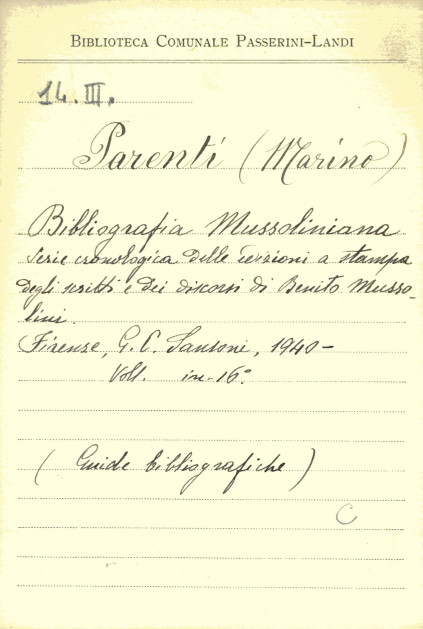 BIBLIOTECA COMUNALE PASSERINI-LANDI
14. III.
Parenti (Marino)
Bibliografia Mussoliniana
Serie cronologica delle edizioni a stampa
degli scritti e dei discorsi di Benito Musso-
lini.
Firenze, G. C. Sansoni, 1940-
Voll. in-16°.
(Guide bibliografiche)
C